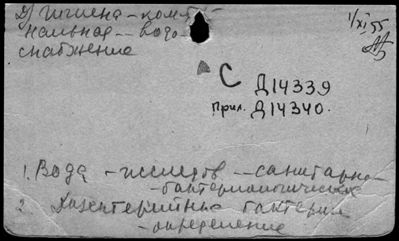 Д) Гигиена – комму
нальная – водо-
снабжение
1/XI 55
С
Д14339
Прил. Д14340.
1. Вода – исследов – санитарно-
– бактериологическое
2. бактерии
– определение